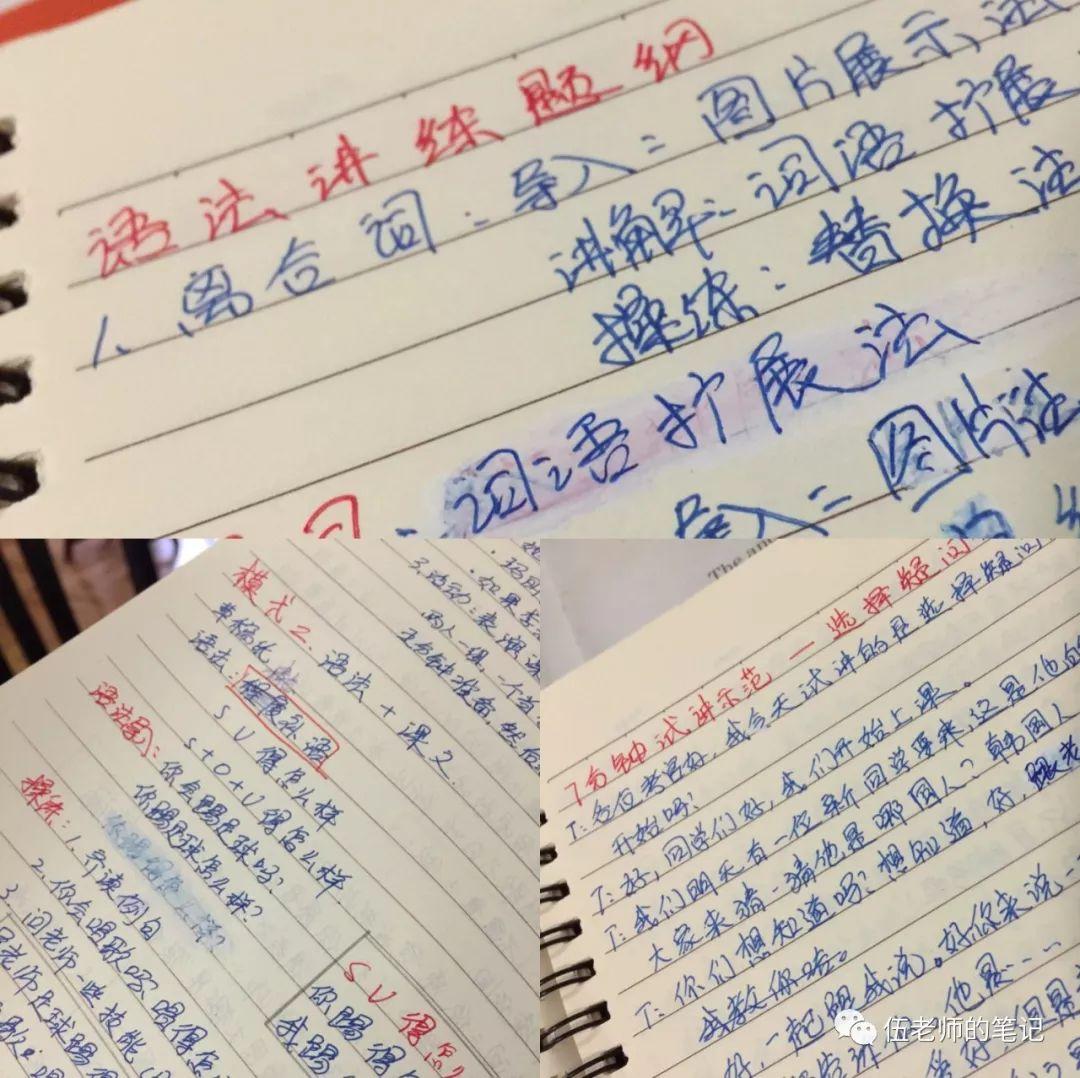 语法讲练题纲
1、离合词：导入：图片展示法
讲解：词语扩展
操练：替换法
词：词语扩展法
导入：图片法
模式2、语法+课文
语法：
S V 得怎么样
S+O+V 得怎么样
你会踢足球吗？
你踢足球怎么样？
操练：1、齐读例句
2、你会唱歌吗？唱得怎
3、问老师一些技能
老师足球踢得
S V 得怎
你踢得
我踢
3、活动：表演
两人一组，一个当
The am
7分钟试讲示范—选择疑问
T：各位考官好，我今天试讲的是选择疑问
开始吗？
T：好，同学们好，我们开始上课。
T：我们明天有一位新同学要来，还是他
大家来猜一猜他是哪国人？韩国人
T：你们想知道吗？想知道，好，跟老
我教你哈。
T：好，一起跟我说。好你来说一
他是……
伍老师的笔记